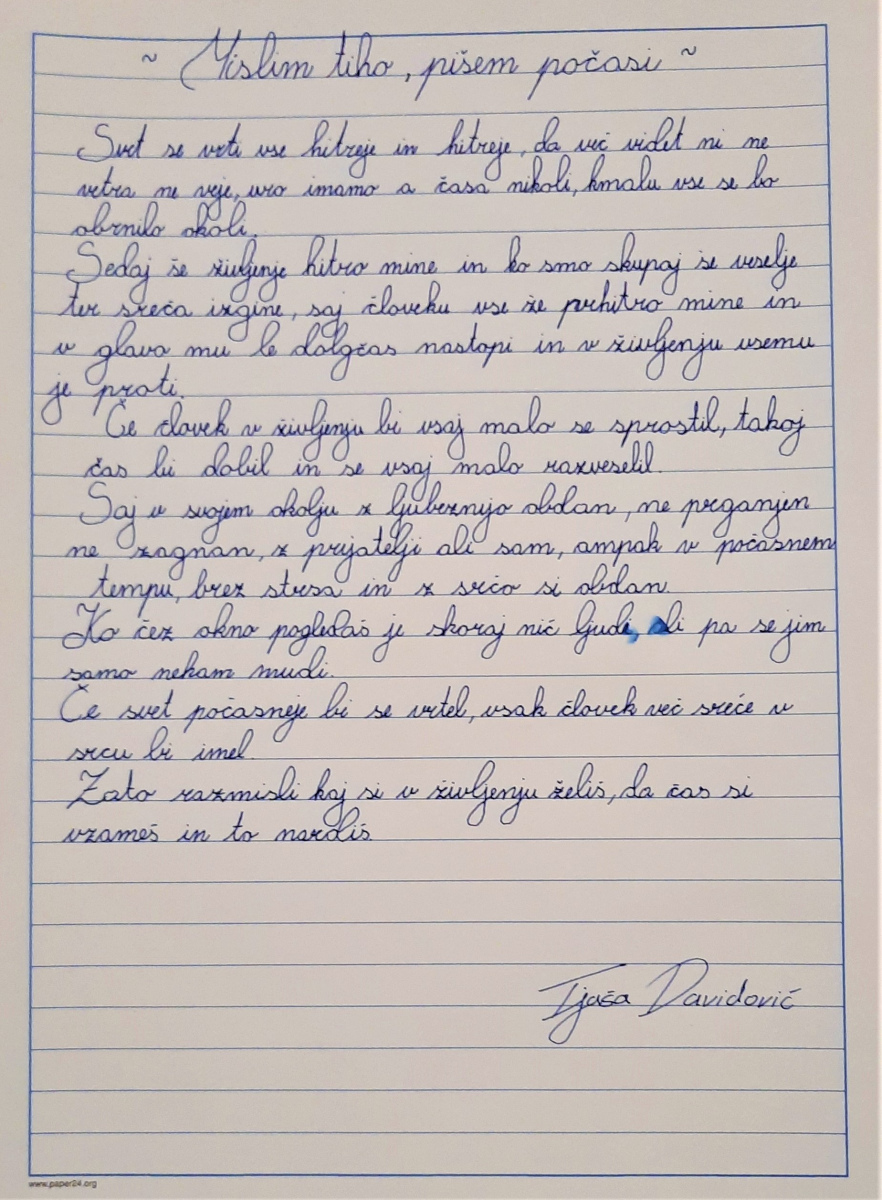 ~ Mislim tiho, pišem počasi ~
Svet se vrti vse hitreje in hitreje, da več videt ni ne
vetra ne veje, uro imamo a časa nikoli, kmalu vse se bo
obrnilo okoli.
Sedaj še življenje hitro mine in ko smo skupaj še veselje
ter sreča izgine, saj človeku vse že prehitro mine in
v glavo mu le dolgčas nastopi in v življenju vsemu
je proti.
Če človek v življenju bi vsaj malo se sprostil, takoj
čas bi dobil in se vsaj malo razveselil.
Saj v svojem okolju z ljubeznijo obdan, ne preganjen
ne zagnan, z prijatelji ali sam, ampak v počasnem
tempu, brez stresa in z srčo si obdan.
Ko čez okno pogledaš je skoraj nič ljudi, ali pa se jim
samo nekam mudi.
Če svet počasneje bi se vrtel, vsak človek več sreče v
srcu bi imel.
Zato razmisli kaj si v življenju želiš, da čas si
vzameš in to nardiš.
Tjaša Davidović
www.paper24.org